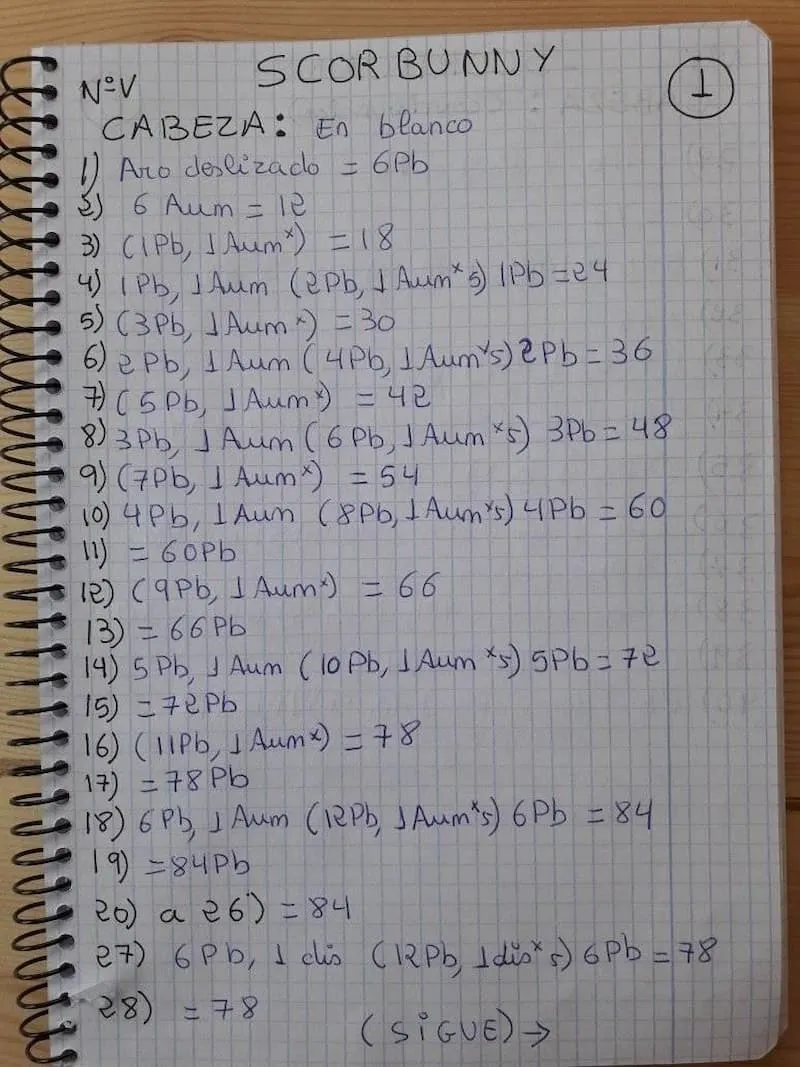 SCORBUNNY
NºV
1
CABEZA: En blanco
1) Aro deslizado = 6Pb
2) 6 Aum = 12
3) (1Pb, 1Aumˣ) = 18
4) 1Pb, 1Aum (2Pb, 1Aumˣ5) 1Pb = 24
5) (3Pb, 1Aumˣ) = 30
6) 2Pb, 1Aum (4Pb, 1Aumˣ5) 2Pb = 36
7) (5Pb, 1Aumˣ) = 42
8) 3Pb, 1Aum (6Pb, 1Aumˣ5) 3Pb = 48
9) (7Pb, 1Aumˣ) = 54
10) 4Pb, 1Aum (8Pb, 1Aumˣ5) 4Pb = 60
11) = 60Pb
12) (9Pb, 1Aumˣ) = 66
13) = 66Pb
14) 5Pb, 1Aum (10Pb, 1Aumˣ5) 5Pb = 72
15) = 72Pb
16) (11Pb, 1Aumˣ) = 78
17) = 78Pb
18) 6Pb, 1Aum (12Pb, 1Aumˣ5) 6Pb = 84
19) = 84Pb
20) a 26) = 84
27) 6Pb, 1dis (12Pb, 1disˣ5) 6Pb = 78
28) = 78
(SiGUE) →